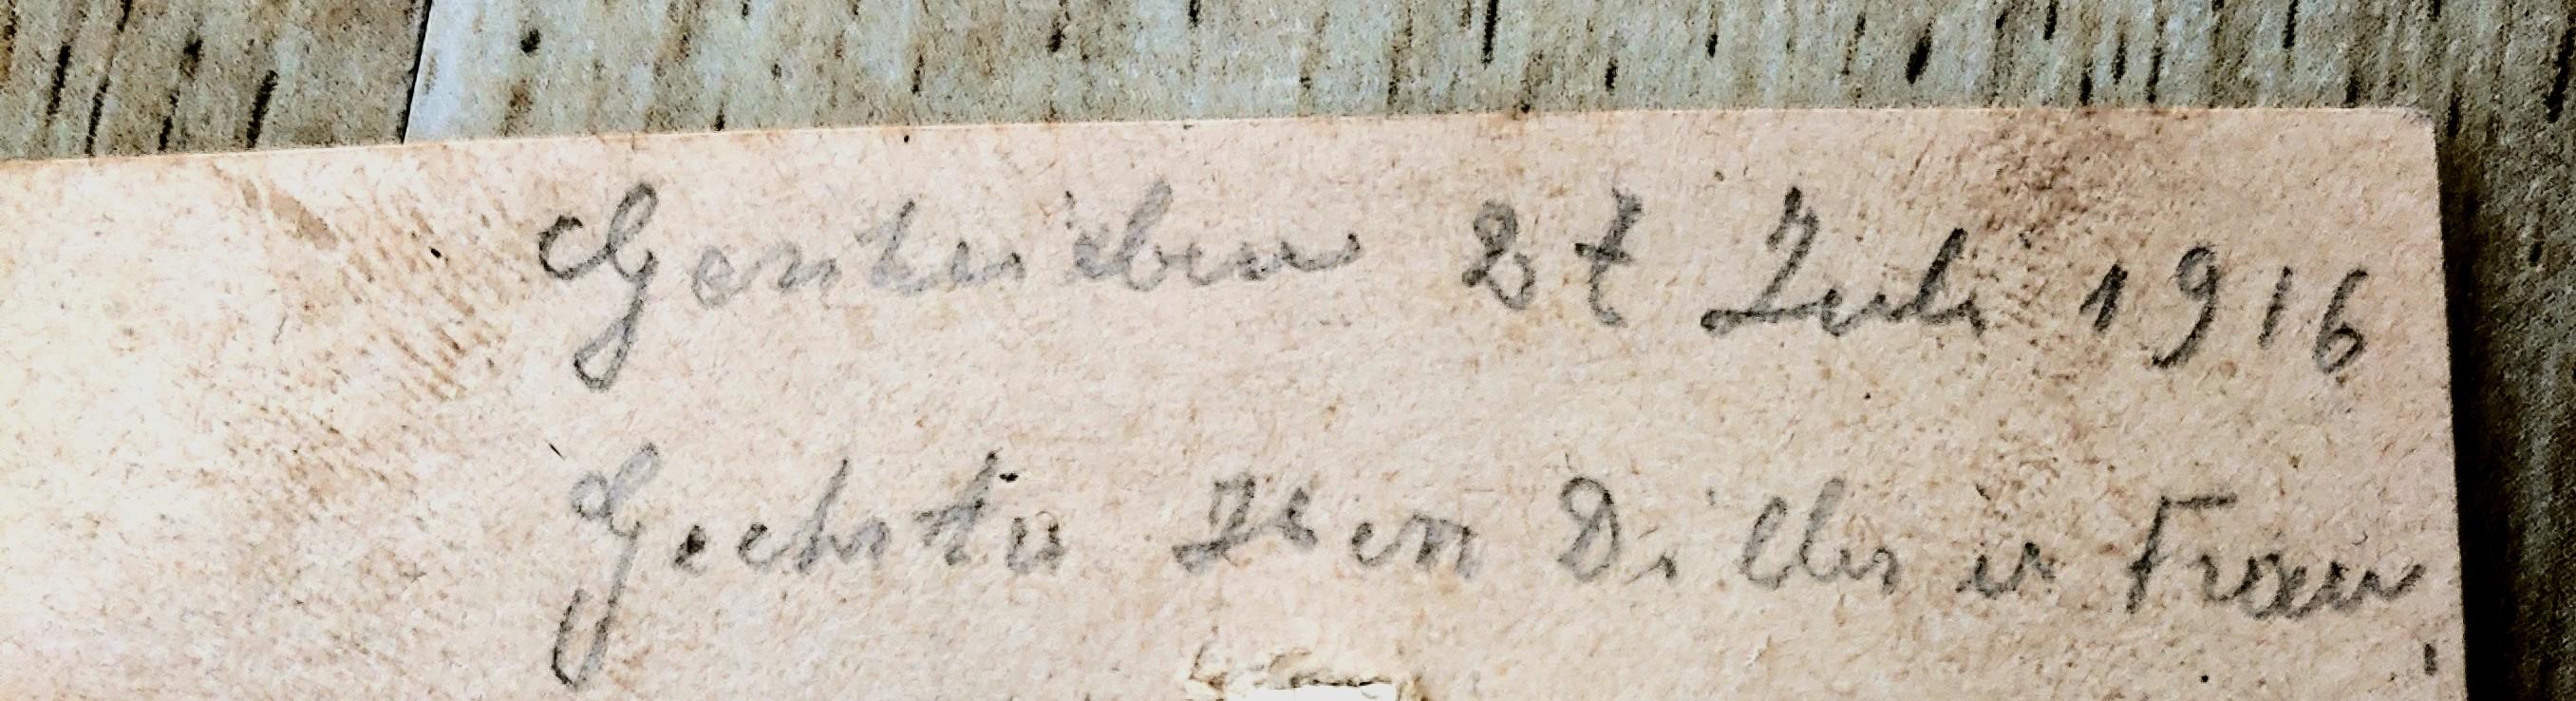 Geschrieben 27 Juli 1916
Geehrter Herr Diller u Frau